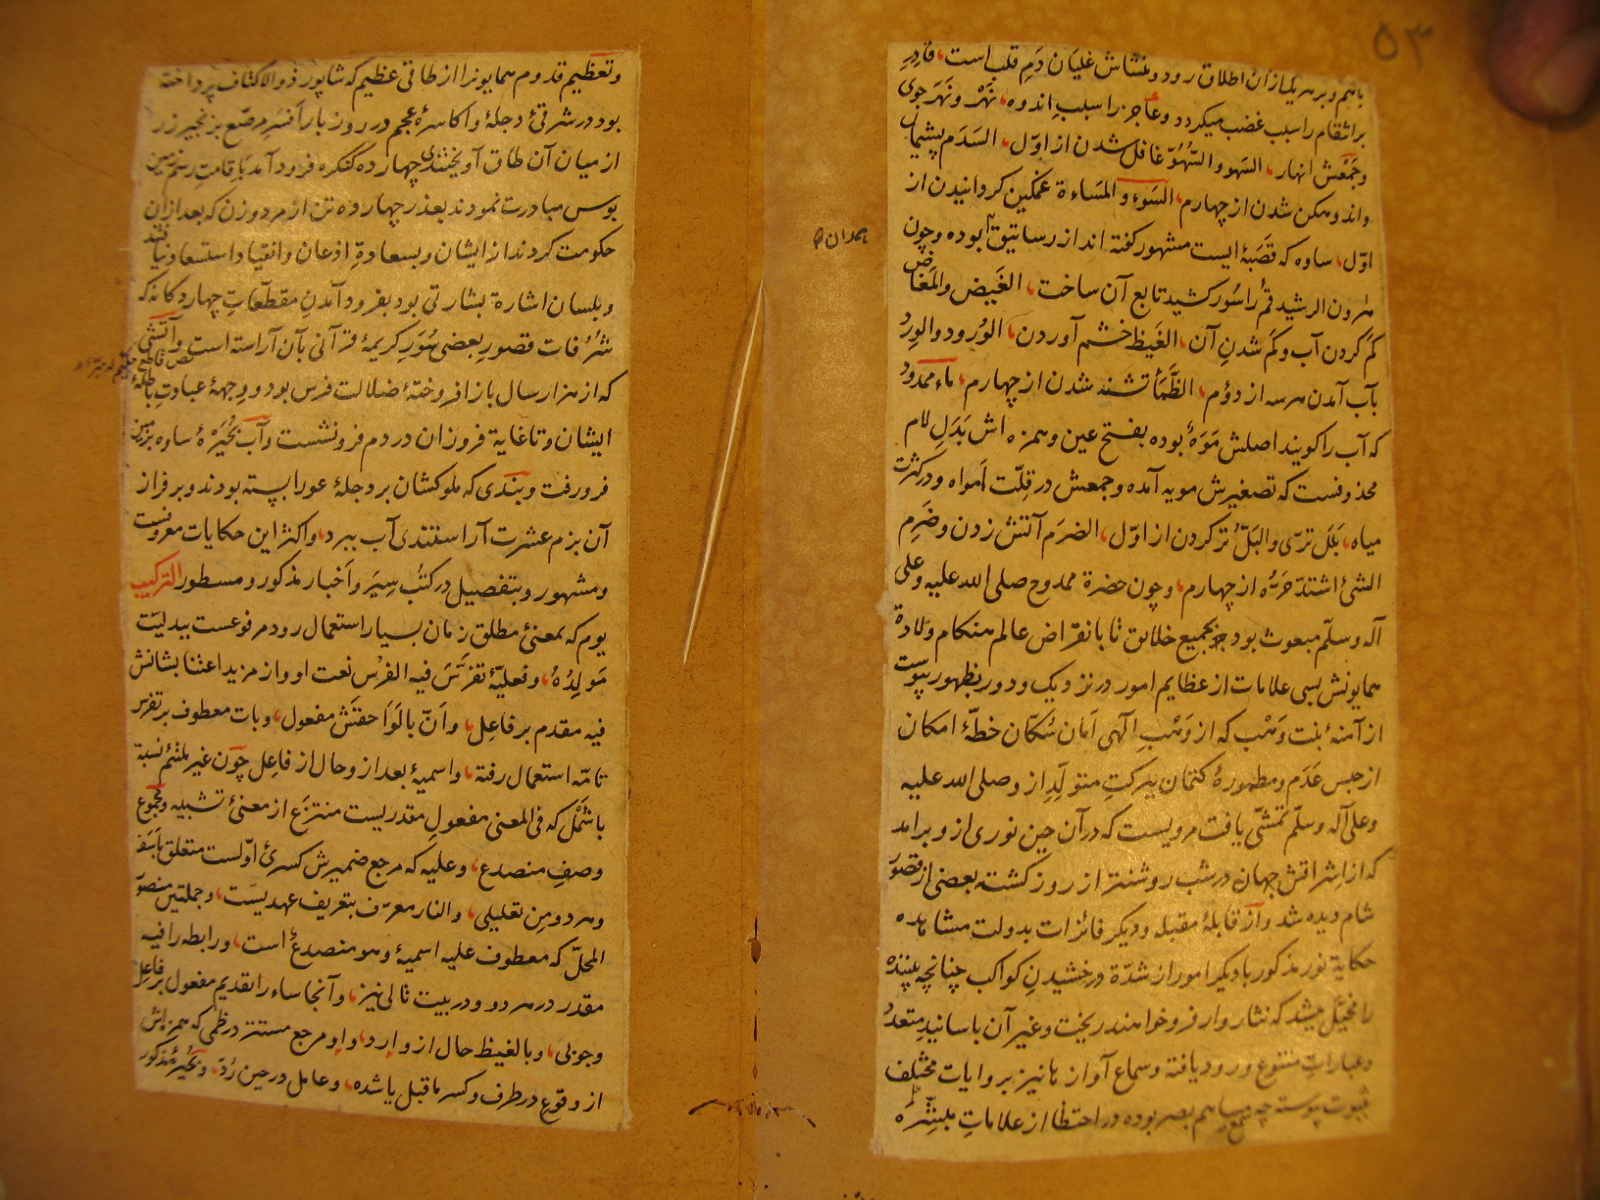 ۵۳
باهم و بر هر یک از آن اطلاق رود و منشاش غلیان دم قلب است، قادر
بر انتقام را سبب غضب میگردد و عاجز را سبب اندوه، نهر و نهر جوی
و جمعش انهار، السهو و السُّهُوّ غافل شدن از اوّل، السَدَم پشیمان
و اندوهگن شدن از چهارم، السَوء و المسَاءة غمگین گردانیدن از
اوّل، ساوه که قصبهٔ ایست مشهور گفته اند از رساتیق بوده و چون
همدان
هرون الرشید قم را سُور کشید تابع آن ساخت، الغَیض و المَغاض
کم کردن آب و کم شدن آن، الغَیظ خشم آوردن، الوُرود و الوِرد
بآب آمدن هر سه از دوُم، الظَّمَأ تشنه شدن از چهارم، ماء ممدود
که آب را گویند اصلش مَوَهٌ بوده بفتح عین و همزه اش بَدَلِ لام
محذوفست که تصغیرش مویه آمده و جمعش در قِلّت اَمواه و در کثرت
میاه، بَلَل ترّی و البَلّ تر کردن از اوّل، الضرَم آتش زدن و ضَرِم
الشئ اشتدّ حَرّه از چهارم، و چون حضرة ممدوح صلی الله علیه و علی
آله و سلّم مبعوث بود بجمیع خلایق تا بانقراض عالم هنگام ولادة
همایونش بسی علامات از عظایم امور در نزدیک و دور بظهور پیوست
از آمنهٔ بنت وَهْب که از وَهْبِ الٓهی اَمان سُکّان خطّهٔ امکان
از حبس عَدَم و مطمورهٔ کتمان ببرکتِ متولّدِ از و صلی الله علیه
و علی آله و سلّم تمشّی یافت مرویست که در آن حین نوری ازو برآمد
که از اشراقش جهان در شب روشنتر از روز گشته بعضی از قصور
شام دیده شد و از قابلهٔ مقبله و دیگر فائزات بدولت مشاهده
حکایة نور مذکور با دیگر امور از شدّة درخشیدنِ کواکب چنانچه بیننده
را مخیّل میشد که نثاروار فرو خواهند ریخت و غیر آن باسانید متعدد
و عباراتِ متنوع ورود یافته و سماع آوازها نیز بروایات مختلف
ثبوت پیوسته چه سمع هم بصر بوده در احتظا از علاماتِ مبشّره
و تعظیم قدوم همایونرا از طاقی عظیم که شاپور ذوالاکتاف پرداخته
بود در شرقئ دجله و اکاسرهٔ عجم در روز بار اَفسَرِ مرصّع بزنجیر زر
از میان آن طاق آویختندی چهارده کنگره فرود آمد باقامتِ رسم زمین
بوس مبادرت نمودند بعدد چهارده تن از مرد و زن که بعد از آن
حکومت کردند از ایشان و بسعادةِ اذعان و انقیاد استسعاد نیافتند
و بلسان اشارة بشارتی بود بفرود آمدنِ مقطّعاتِ چهاردگانه که
شُرُفات قصورِ بعضی سُوَرِ کریمهٔ قرآنی بآن آراسته است و آتشی
که از هزار سال باز افروختهٔ ضلالت فرس بود و وجههٔ عبادتِ باطلهٔ
ایشان و تا غایة فروزان در دم فرو نشست و آب بُحَیْرهٔ ساوه بزمین
فرو رفت و بندی که ملوکشان بر دجلهٔ عورا بسته بودند و بر فراز
آن بزم عشرت آراستندی آب ببرد، و اکثر این حکایات معروفست
و مشهور و بتفصیل در کتُب سِیَر و اَخبار مذکور و مسطور الترکیب
یوم که بمعنئ مطلق زمان بسیار استعمال رود مرفوعست ببدلیّت
مَولِدُهُ، و فعلیّهٔ تفرّسَ فیه الفُرْس نعت او و از مزید اعتنا بشانش
فیه مقدم بر فاعِل، و اَنّ بالَواحقش مفعول، و بات معطوف بر تفرّس
تامّه استعمال رفته، و اسمیهٔ بعد ازو حال از فاعِل چون غیر ملتئم نسبة
با شَمْل که فی المعنی مفعولِ مقدریست منتزَع از معنئ تشبیه و مجموع
وصفِ منصدع، و علیه که مرجع ضمیرش کسرئ اوّلست متعلق باَسَف
و هر دو مِن تعلیلی، و النار معرّف بتعریف عهدیست، و جملتین منصوب
المحلّ که معطوف علیه اسمیهٔ و هو منصدعٌ است، و رابطه را فیه
مقدر در هر دو و در بیت تالی نیز، و آنجا ساء را تقدیم مفعول بر فاعل
وجوبی، و بالغیظ حال از وارد، و او مرجع مستتر در ظمی که همزه اش
از وقوع در طرف و کسر ماقبل یا شده، و عامل در حین رُدّ، و بُحَیرهٔ مذکور